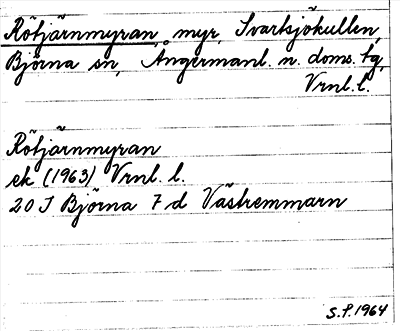 Rötjärnmyran, myr, Svartsjökullen,
Björna sn, Ångermanl. n. doms. tg,
Vrnl. l.
Rötjärnmyran
ek (1963) Vrnl. l.
20 J Björna 7 d Västremmarn
S.P. 1964